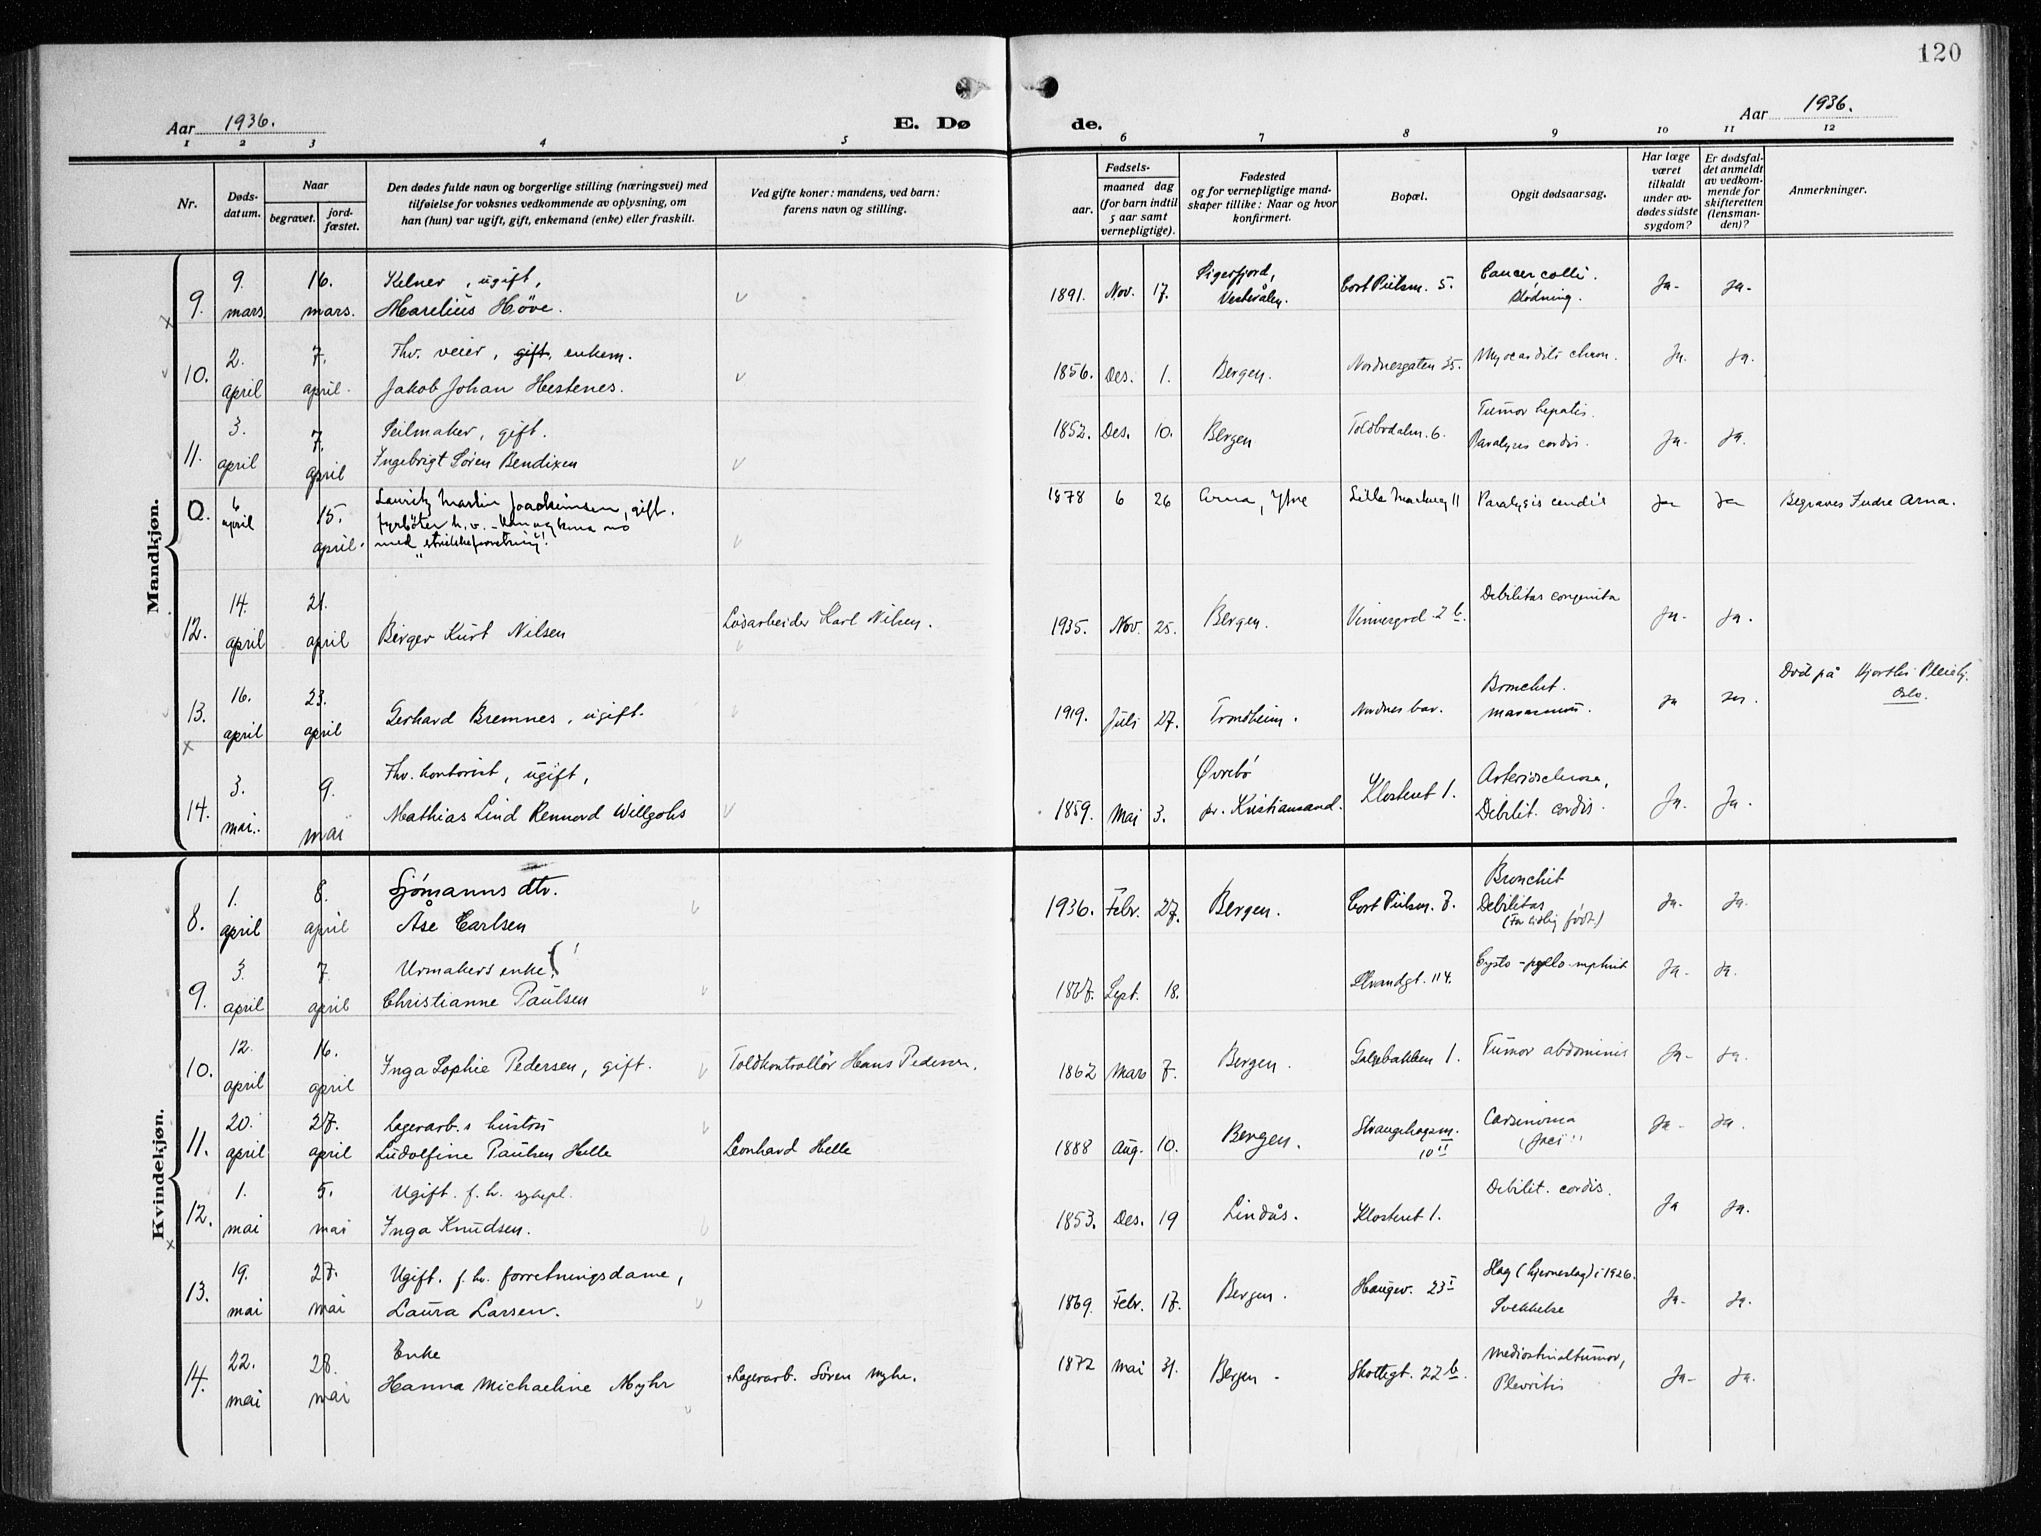 120
Aar 1936.
E. Dø de.
Aar 1936.
1 2 3 4 5 6 7 8 9 10 11 12
Nr.
Døds-
datum.
Naar
begravet.
jord-
fæstet.
Den dødes fulde navn og borgerlige stilling (næringsvei) med
tilføielse for voksnes vedkommende av oplysning, om
han (hun) var ugift, gift, enkemand (enke) eller fraskilt.
Ved gifte koner: mandens, ved barn:
farens navn og stilling.
Fødsels-
aar.
maaned dag
(for barn indtil
5 aar samt
vernepligtige).
Fødested
og for vernepligtige mand-
skaper tillike: Naar og hvor
konfirmert.
Bopæl.
Opgit dødsaarsag.
Har læge
været
tilkaldt
under av-
dødes sidste
sygdom?
Er dødsfal-
det anmeldt
av vedkom-
mende for
skifteretten
(lensman-
den)?
Anmerkninger.
Mandkjøn.
9. 9. mars 16. mars. Kelner, ugift,
Marelius Høve.
1891. Nov. 17. Sigerfjord,
Vesterålen. Cort Pielsm. 5. Cancer colli.
Blødning. Ja- Ja-
10. 2. april 7. april. Fhv. veier, gift, enkem.
Jakob Johan Hestenes.
1856. Des. 1. Bergen. Nordnesgaten 35. Myocardit chron. Ja. Ja.
11. 3. april 7. april Seilmaker, gift.
Ingebrigt Søren Bendixen
1852. Des. 10. Bergen Toldbodalm. 6. Tumor hepatis.
Paralyses cordis. Ja- Ja.
0. 6 april 15. april. Lauritz Martin Joachimsen, gift.
fyrbøter
med "strikkeforretning".
1878 6 26 Arna, Ytre Lille Markevei 11 Paralysis cordis Ja Ja Begraves Indre Arna.
12. 14. april 21. april Birger Kurt Nilsen Løsarbeider Karl Nilsen.
1935. Nov. 25. Bergen. 2 b. Debilitas congenita Ja- Ja.
13. 16. april 23. april Gerhard Bremnes, ugift.
1919. Juli 27. Trondheim. Nordnes Bronchit.
Marasmus. Ja Ja. Død på Hjorths Pleiehj.
Oslo.
14. 3. mai. 9. mai Fhv. kontorist, ugift,
Mathias Lind Rennord Willgohs
1859. Mai 3. Øvrebø
pr. Kristiansand. Klosteret 1. Arteriosclerose,
Debilit. cordis. Ja- Ja-
Kvindekjøn.
8. 1. april 8. april Sjømanns dtr.
Åse Carlsen
1936. Febr. 27. Bergen. Cort Pielsm. 7. Bronchit
Debilitas
(For tidlig født.) Ja- Ja.
9. 3. april 7. april Urmakers enke,
Christianne Paulsen
1867. Sept. 18. Strandgt. 114. Cysto-pyelo-nephrit Ja- Ja.
10. 12. april 16. april Inga Sophie Pedersen, gift. Toldkontrollør Hans Pedersen.
1862 Mars 7. Bergen. Galgebakken 1. Tumor abdominis Ja- Ja.
11. 20. april 27. april Lagerarb.s hustru
Ludolfine Paulsen Helle Leonhard Helle
1888 Aug. 10. Bergen. Strangehagm.
10 II Carsinoma
Ja- Ja.
12. 1. mai 5. mai Ugift. f.h. sykepl.
Inga Knudsen.
1853. Des. 19 Lindås. Klosteret 1. Debilit. cordis. Ja Ja.
13. 19. mai 27. mai Ugift. f.hv. forretningsdame,
Laura Larsen.
1869. Febr. 17. Bergen. Haugev. 23 I Slag (hjerneslag) i 1926.
Svekkelse Ja- Ja.
14. 22. mai 28. mai Enke
Hanna Michaeline Myhr Lagerarb. Søren Myhr.
1872 Mai 31. Bergen. Skottegt. 22 b. Mediastinaltumor,
Plevritis Ja- Ja.